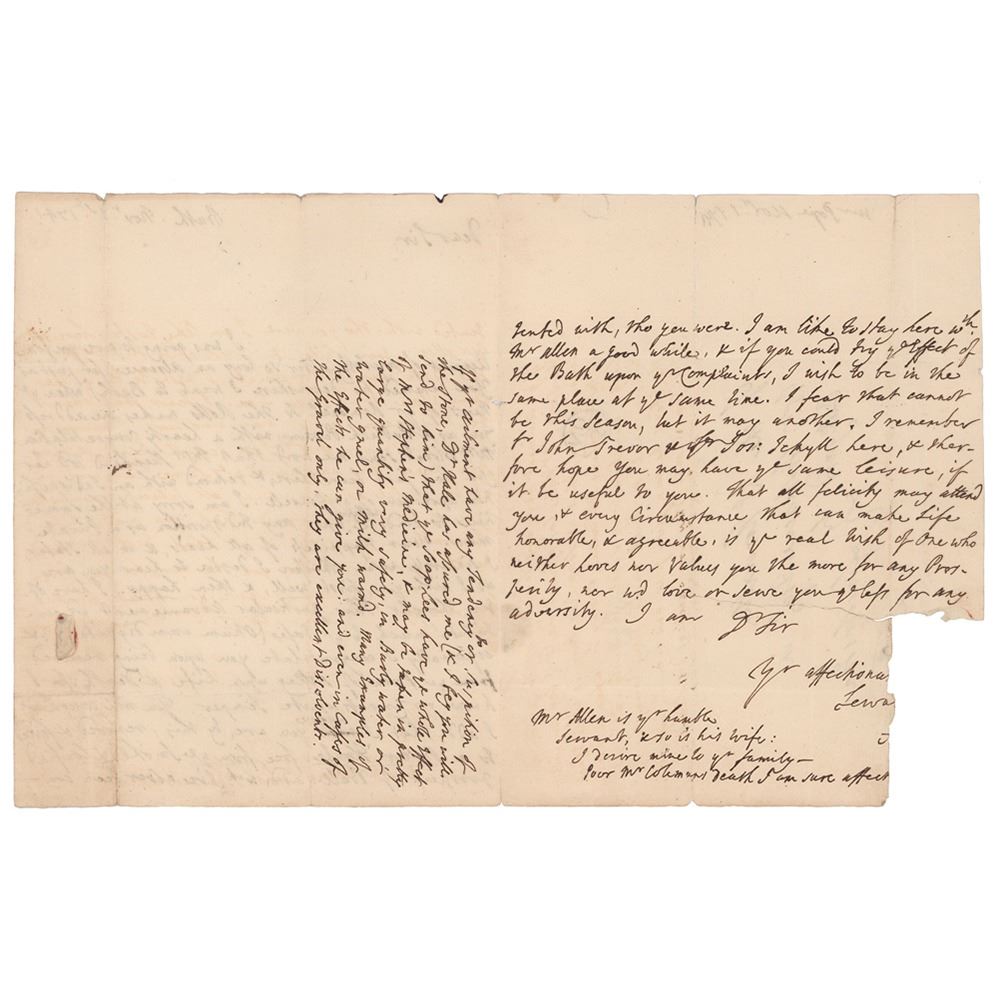 tented with, tho you were. I am like to stay here wth.
Mr Allen a good while, & if you could try ye Effect of
the Bath upon yr Complaints, I wish to be in the
same place at ye same time. I fear that cannot
be this Season, but it may another. I remember
Sr John Trevor & Sr Jos: Jekyll here, & ther-
fore hope you may have ye same leisure, if
it be useful to you. That all felicity may attend
you, & every Circumstance that can make Life
honorable, & agreeable, is ye real Wish of One who
neither loves nor Values you the more for any Pros-
perity, nor wd love or serve you ye less for any
adversity. I am Dr Sir
Yr affectiona
Serva
Mr Allen is yr humble
Servant, & so is his wife:
I desire mine to yr family—
Poor Mr Colemans death I am sure affect
If yr ailment have any Tendency to or Suspicion of
the Stone, Dr Hale has assured me (& I beg you will
send to him) that ye Soaplees have ye whole Effect
of Mrs Stephens's Medicine, & may be taken in pretty
large quantity very safely, in Barly water or
water gruel, or Milk warmd. Many Examples of
the Effect he can give you; and even in Cases of
the Gravel only, they are excellent Dissolvents.
Dear Sir,
Bath. Nov.